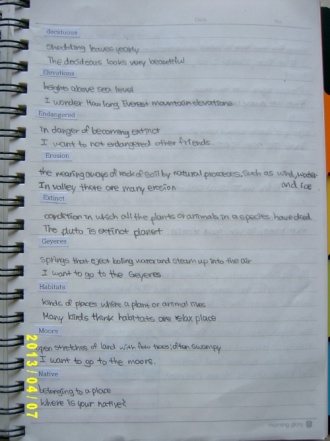 deciduous
shedding leaves yearly
The deciduous looks very beautiful
Elevations
heights above sea level
I wonder How long Everest mountain elevations.
Endangered
in danger of becoming extinct
I want to not endangered other friends
Erosion
the wearing away of rock or soil by natural processes, such as wind, water
In valley there are many erosion and ice
Extinct
condition in which all the plants or animals in a species have died.
The pluto is extinct planet
Geyeres
springs that eject boiling water and steam up into the air
I want to go to the Geyeres
Habitats
kinds of places where a plant or animal lives
Many birds think habitats are relax place
Moors
open stretches of land with few trees; often swampy
I want to go to the moors.
Native
belonging to a place
Where is your native?
morning glory
2013/04/07